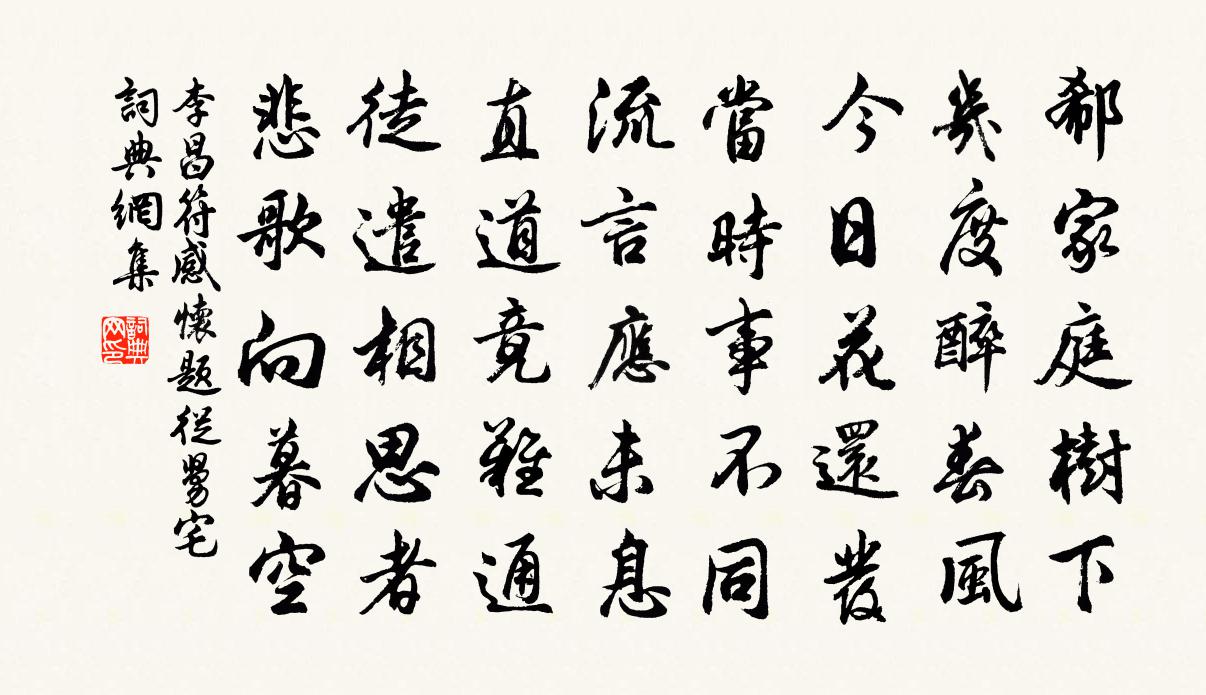 郗家庭樹下
幾度醉春風
今日花還發
當時事不同
流言應未息
直道竟難通
徒遣相思者
悲歌向暮空
李昌符感懷題從舅宅
詞典網集
詞典网印